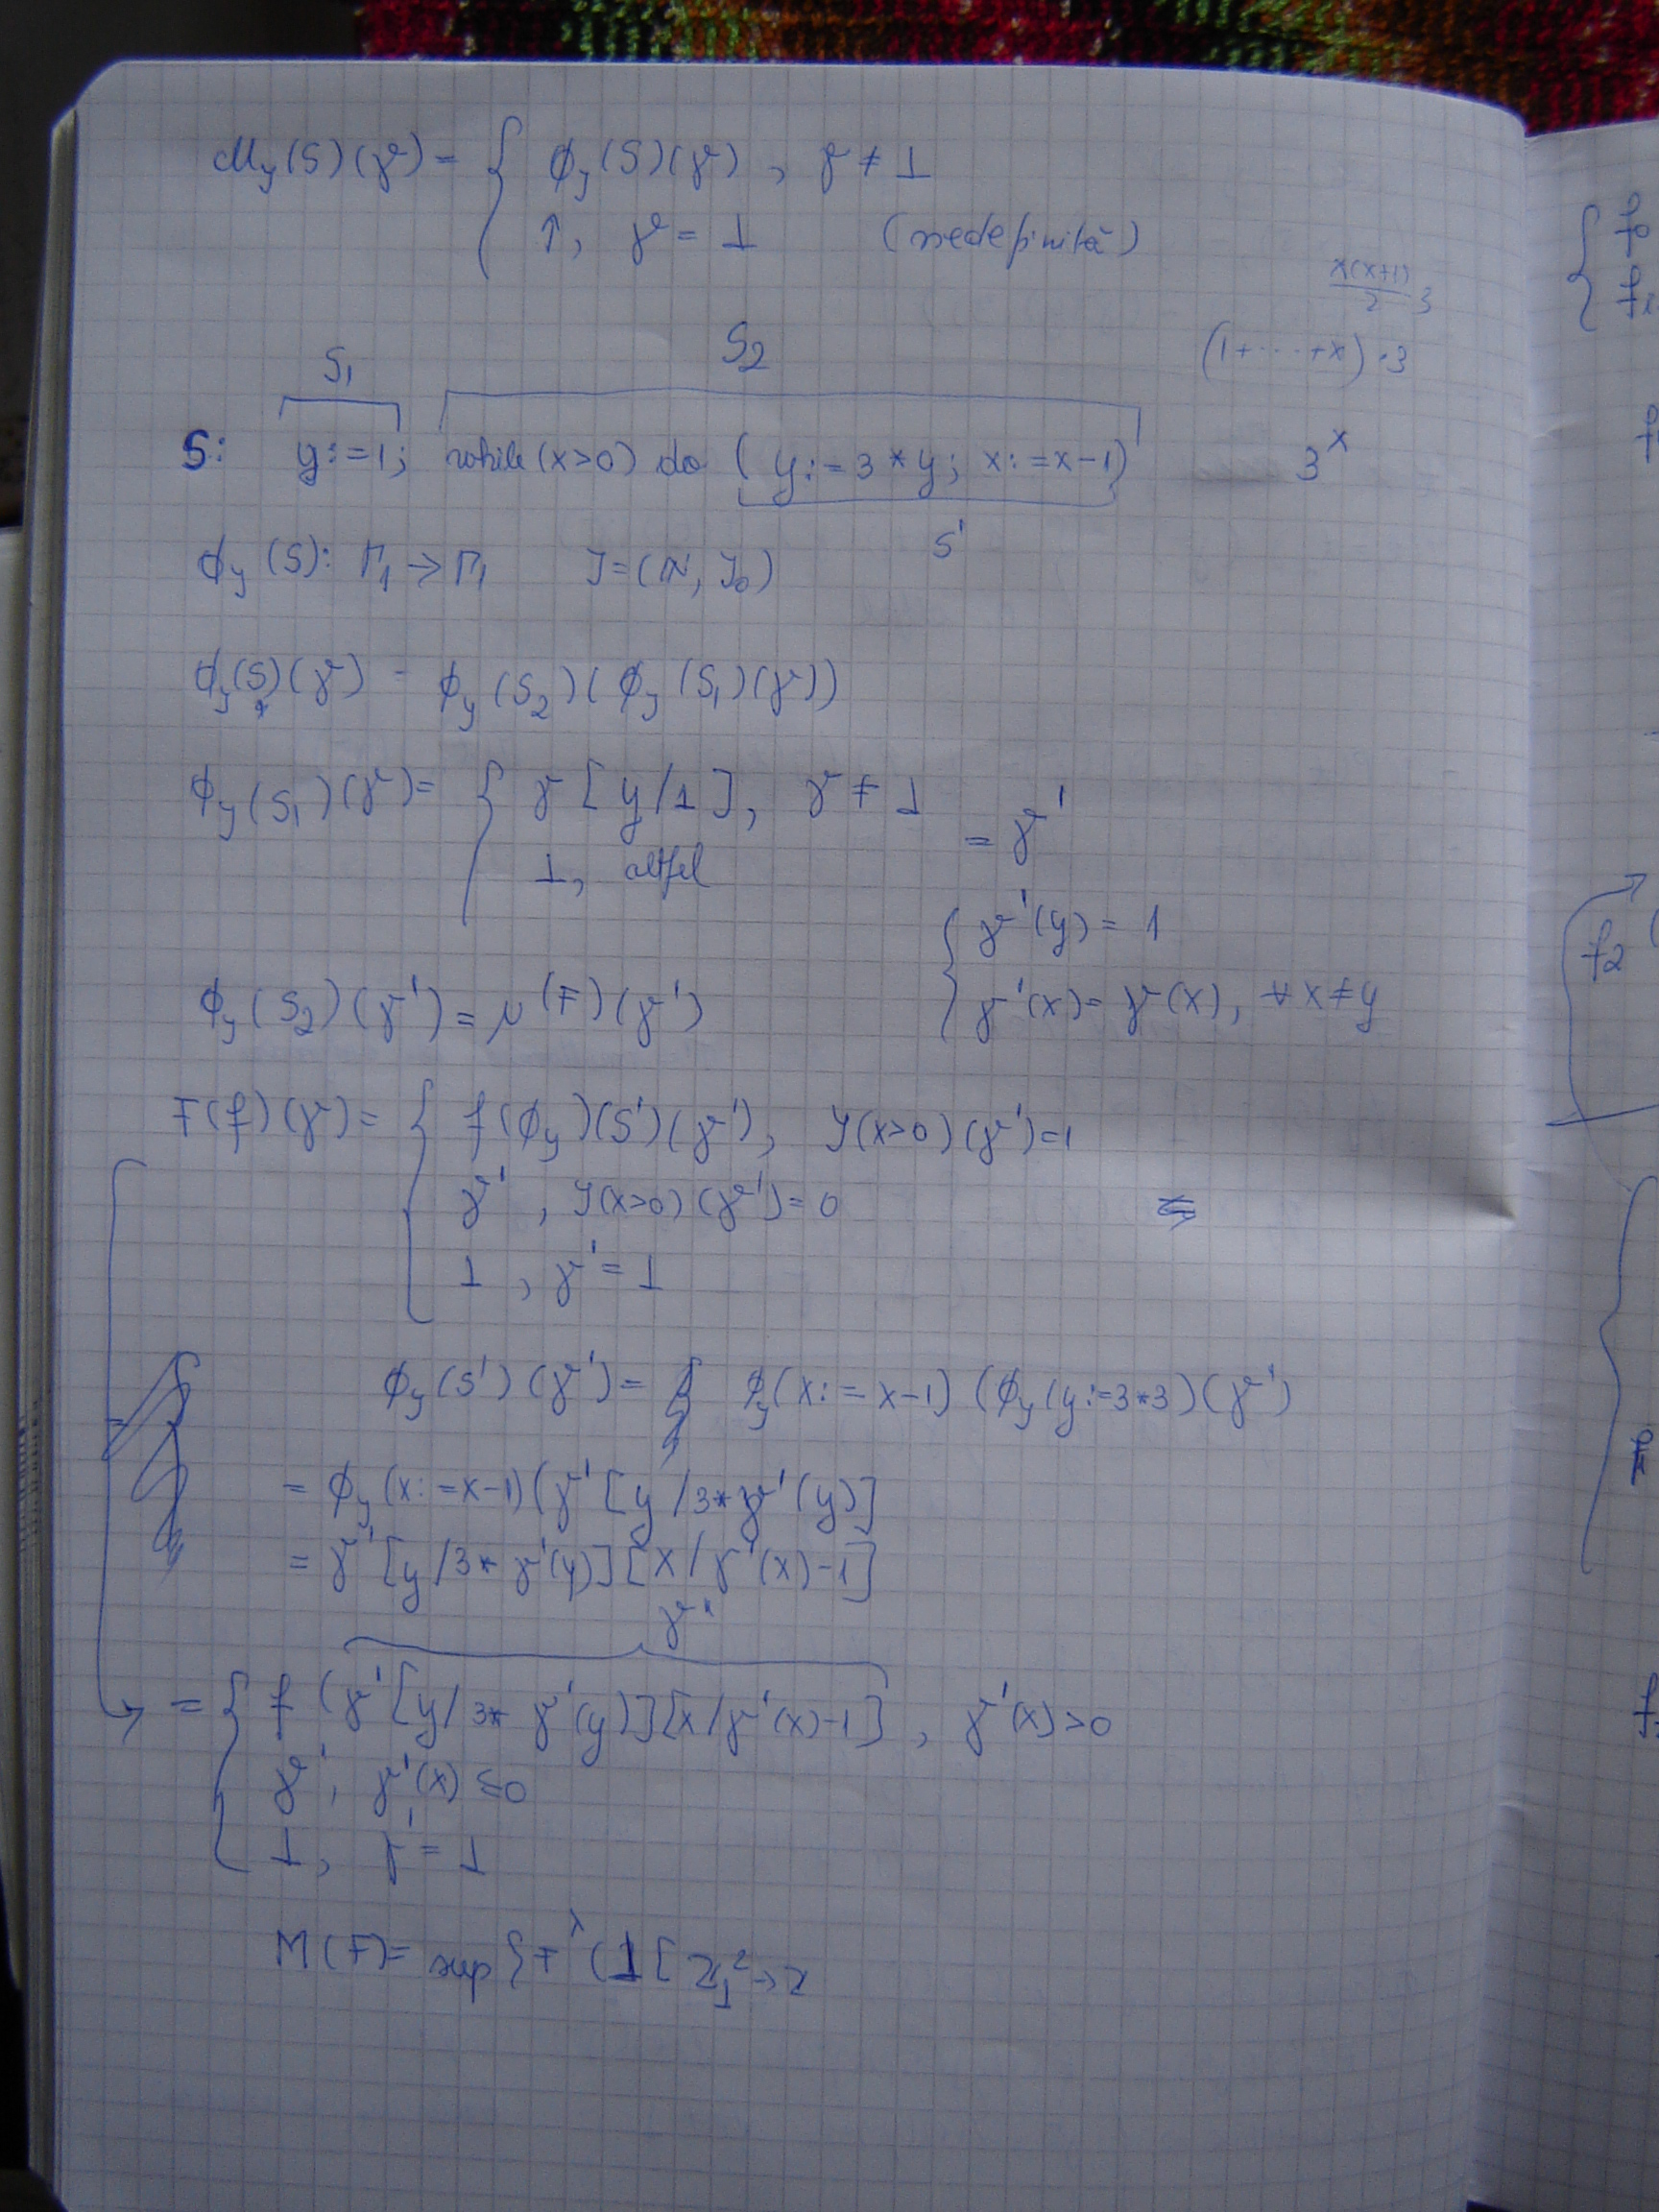 ℳ_y(S)(γ) = { ϕ_y(S)(γ), γ ≠ ⊥
↑, γ = ⊥ (nedefinită)
x(x+1)/2 · 3
(1+⋯+x)·3
S₁ S₂
S: y:=1; while (x>0) do (y:=3*y; x:=x-1) 3^x
S'
ϕ_y(S): Γ_⊥ → Γ_⊥ Y=(N, Y₀)
ϕ_y(S)(γ) = ϕ_y(S₂)(ϕ_y(S₁)(γ))
ϕ_y(S₁)(γ) = { γ[y/1], γ ≠ ⊥
⊥, altfel = γ'
{ γ'(y) = 1
γ'(x) = γ(x), ∀ x≠y
ϕ_y(S₂)(γ') = μ(F)(γ')
F(f)(γ) = { f(ϕ_y)(S')(γ'), Y(x>0)(γ')=1
γ', Y(x>0)(γ')=0
⊥, γ'=⊥
ϕ_y(S')(γ') = ϕ_y(x:=x-1)(ϕ_y(y:=3*3)(γ')
= ϕ_y(x:=x-1)(γ'[y/3*γ'(y)]
= γ'[y/3*γ'(y)][x/γ'(x)-1]
γ"
→ = { f(γ'[y/3*γ'(y)][x/γ'(x)-1], γ'(x)>0
γ', γ'(x) ≤0
⊥, γ'=⊥
M(F)= sup{F
f₂